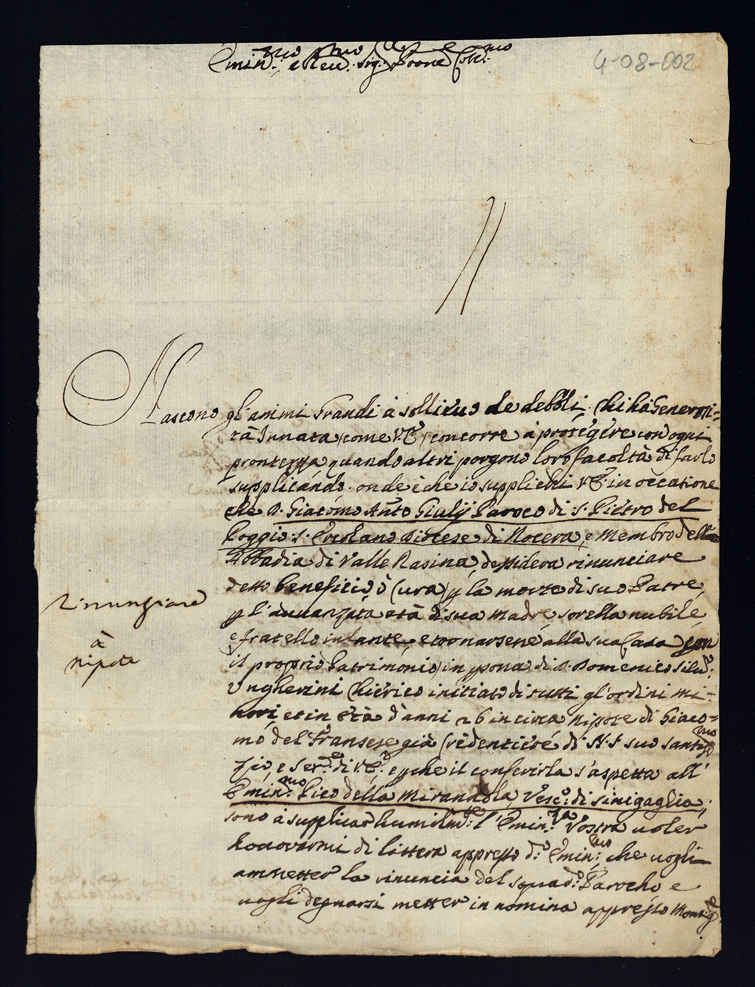 Emin.mo e Rev.mo Sig.r Prone Col.mo
4-08-002
Nascono gl'animi Grandi à sollievo de deboli. Chi hà Generosi-
tà Innata, come V.E. concorre à protegere con ogni
prontezza quando altri porgono loro facoltà di farlo
supplicando. onde è che io supplichi V.E. in occatione
che D. Giacomo Ant.o Giulij Paroco di S. Pietro del
Poggio S. Ercolano Diocese di Nocera, e Membro della
Abbadia di Valle Rasina, desidera rinunciare
detto beneficio ò Cura p la morte di suo Patre
p l'avvanzata età di sua Madre, sorella nubile
e fratello infante, e tornarsene alla sua Casa con
il proprio Patrimonio, in psona di D. Domenico
Ungherini Chierico initiato di tutti gl'ordini mi-
nori et in età d'anni 26 in circa nipote di Giaco-
mo del Fransese già Credentiere di N.S. suo santo
Zio, e Ser.e di V.E. e pche il conferirla s'aspetta all'
Emin.mo Pico della Mirandola Vesc.o di Sinigaglia;
sono à supplicar humilm.te l'Emin.za Vostra voler
honorarmi di littera appresso d.o Emin.mo che vogli
ammetter la rinuncia del Paroche e
vogli degnarsi metter in nomina appresso Monsig.e
Rinunziare
à
nipote